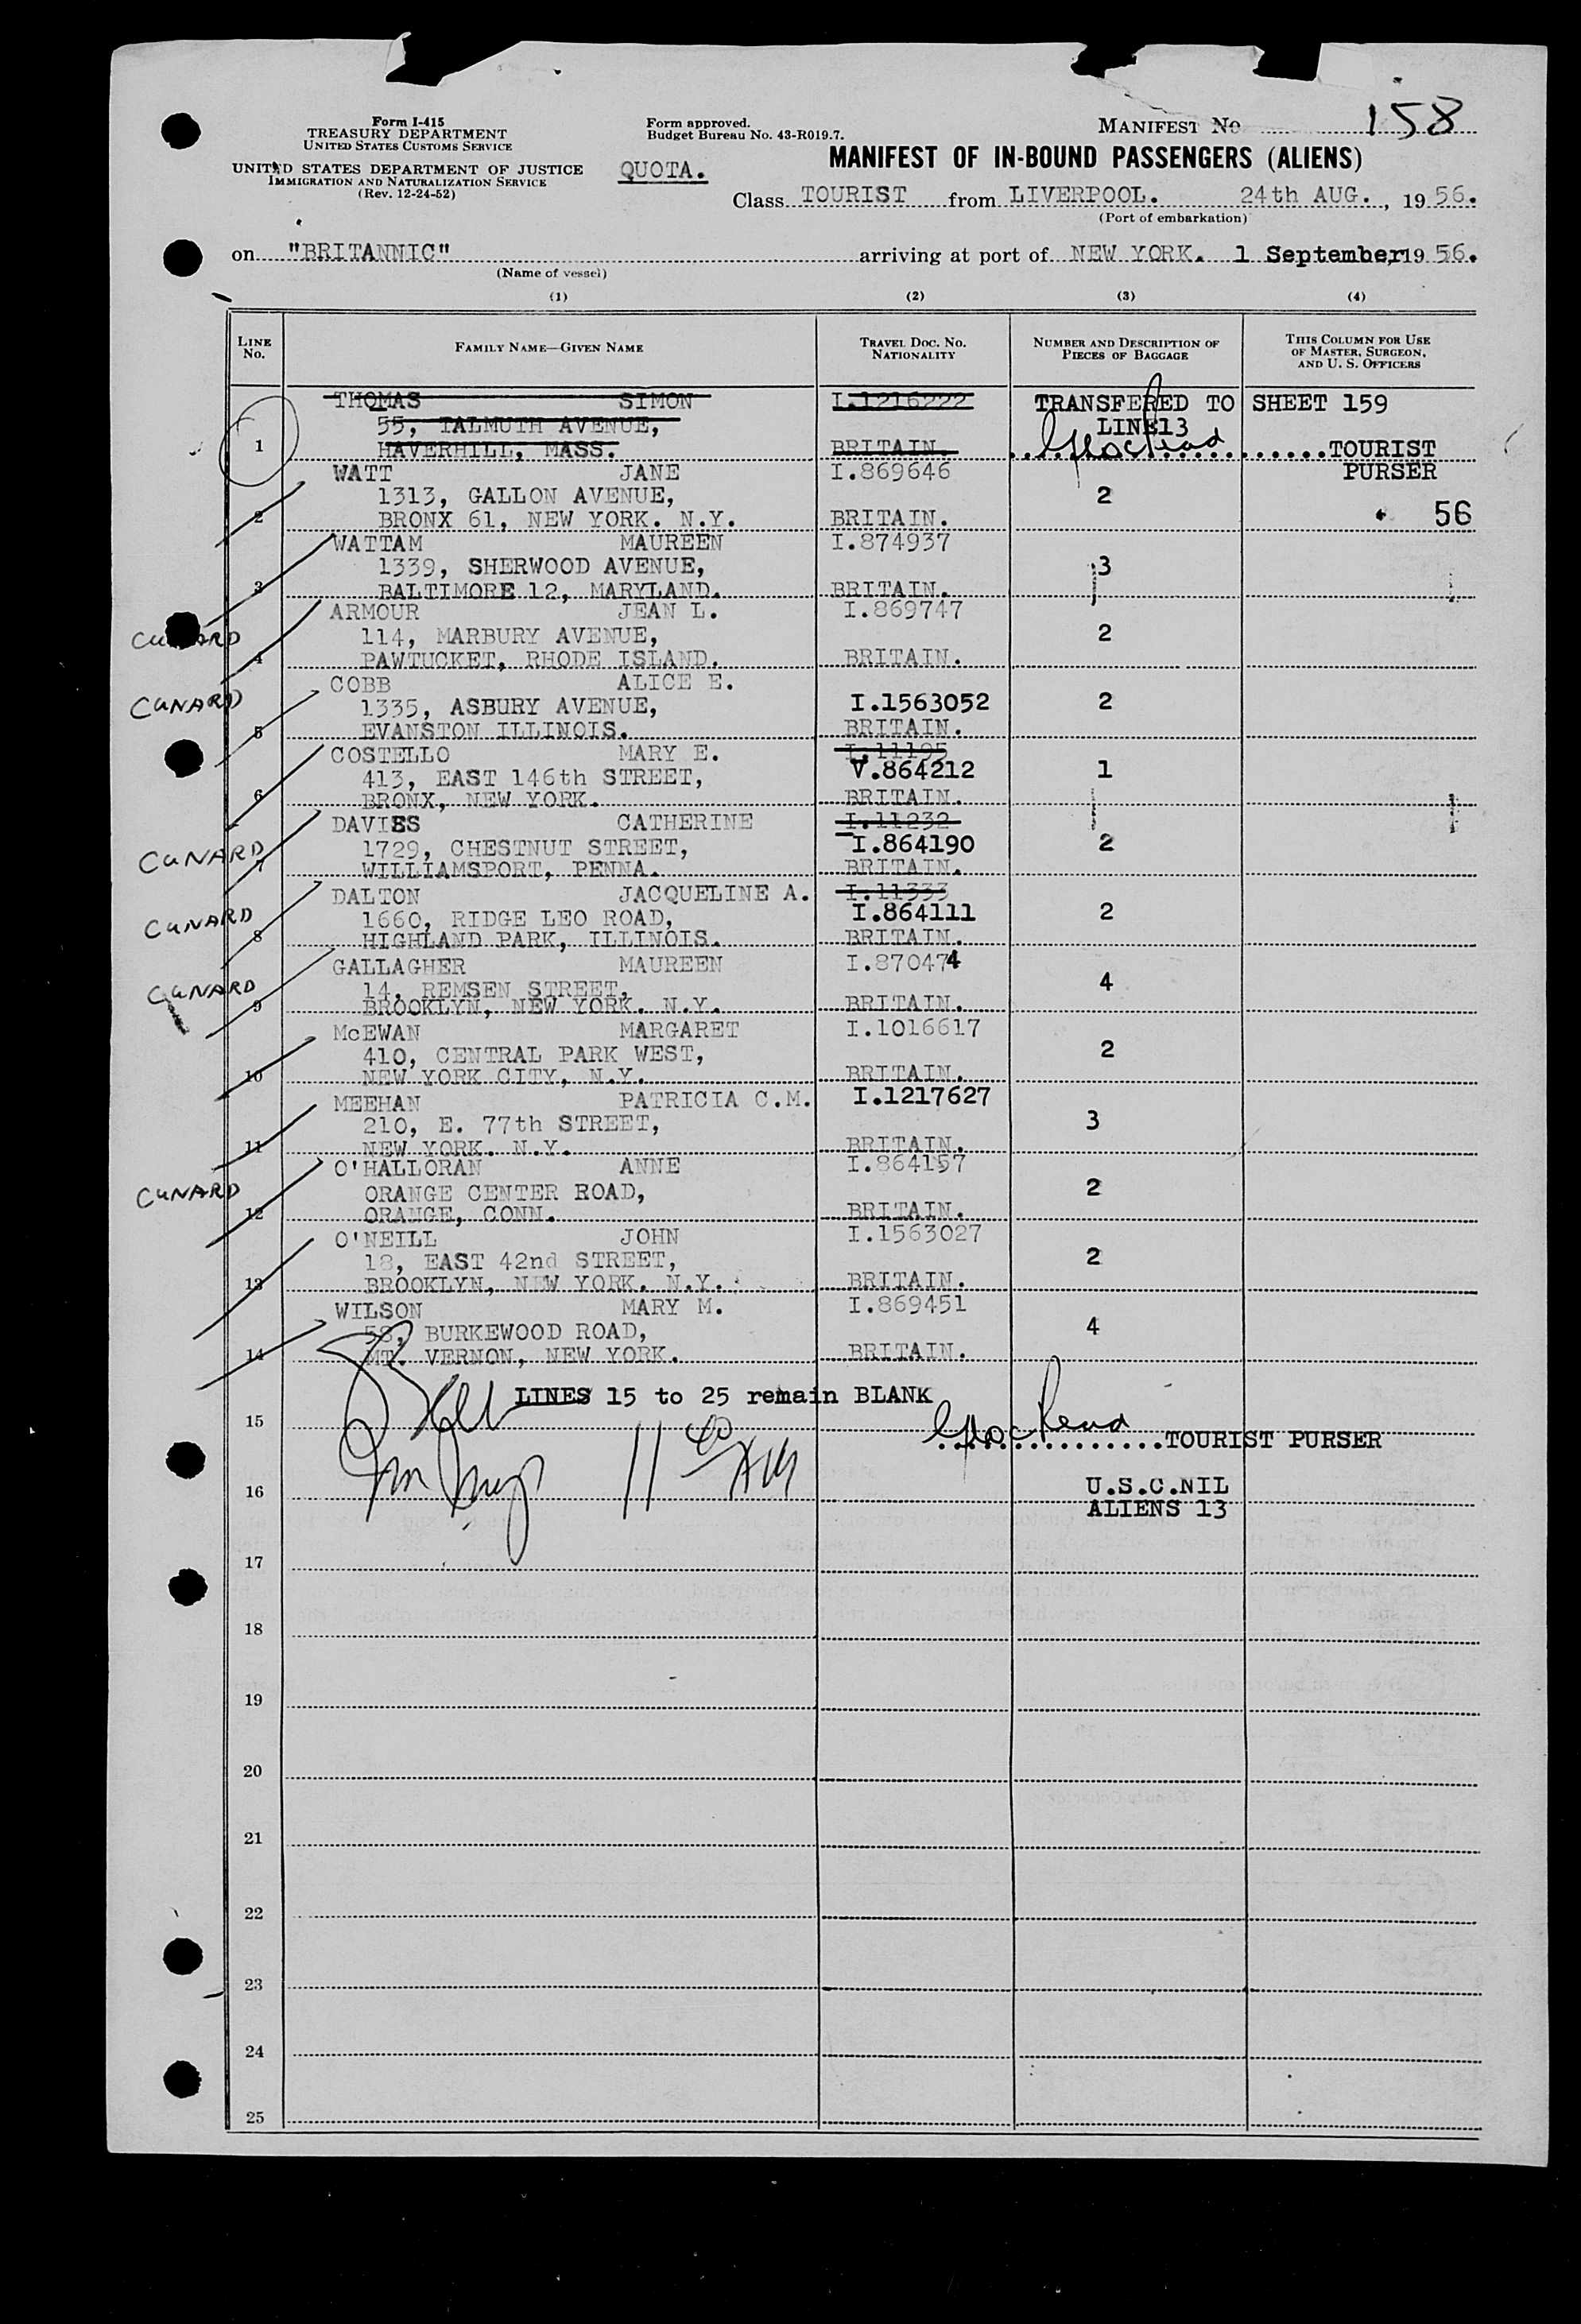 Form I-415
TREASURY DEPARTMENT
UNITED STATES CUSTOMS SERVICE
UNITED STATES DEPARTMENT OF JUSTICE
IMMIGRATION AND NATURALIZATION SERVICE
(Rev. 12-24-52)
Form approved.
Budget Bureau No. 43-R019.7.
QUOTA.
MANIFEST No 158
MANIFEST OF IN-BOUND PASSENGERS (ALIENS)
Class TOURIST from LIVERPOOL. 24th AUG., 1956.
(Port of embarkation)
on "BRITANNIC" arriving at port of NEW YORK. 1 September, 1956.
(Name of vessel)
(1) (2) (3) (4)
LINE No. FAMILY NAME—GIVEN NAME TRAVEL DOC. No. NATIONALITY NUMBER AND DESCRIPTION OF PIECES OF BAGGAGE THIS COLUMN FOR USE OF MASTER, SURGEON, AND U. S. OFFICERS
THOMAS SIMON I.1216222 TRANSFERED TO SHEET 159
55, TALMUTH AVENUE, LINE13
1 HAVERHILL, MASS. BRITAIN. TOURIST
WATT JANE I.869646 PURSER
1313, GALLON AVENUE, 2
2 BRONX 61, NEW YORK. N.Y. BRITAIN. 56
WATTAM MAUREEN I.874937
1339, SHERWOOD AVENUE, 3
3 BALTIMORE 12, MARYLAND. BRITAIN.
ARMOUR JEAN L. I.869747
CUNARD 114, MARBURY AVENUE, 2
4 PAWTUCKET, RHODE ISLAND. BRITAIN.
COBB ALICE E.
CUNARD 1335, ASBURY AVENUE, I.1563052 2
5 EVANSTON ILLINOIS. BRITAIN.
COSTELLO MARY E. I.11195
413, EAST 146th STREET, V.864212 1
6 BRONX, NEW YORK. BRITAIN.
DAVIES CATHERINE I.11232
CUNARD 1729, CHESTNUT STREET, I.864190 2
7 WILLIAMSPORT, PENNA. BRITAIN.
DALTON JACQUELINE A. I.11333
CUNARD 1660, RIDGE LEO ROAD, I.864111 2
8 HIGHLAND PARK, ILLINOIS. BRITAIN.
GALLAGHER MAUREEN I.870474
CUNARD 14, REMSEN STREET, 4
9 BROOKLYN, NEW YORK. N.Y. BRITAIN.
McEWAN MARGARET I.1016617
410, CENTRAL PARK WEST, 2
10 NEW YORK CITY, N.Y. BRITAIN.
MEEHAN PATRICIA C.M. I.1217627
210, E. 77th STREET, 3
11 NEW YORK. N.Y. BRITAIN.
O'HALLORAN ANNE I.864157
CUNARD ORANGE CENTER ROAD, 2
12 ORANGE, CONN. BRITAIN.
O'NEILL JOHN I.1563027
18, EAST 42nd STREET, 2
13 BROOKLYN, NEW YORK. N.Y. BRITAIN.
WILSON MARY M. I.869451
58, BURKEWOOD ROAD, 4
14 MT. VERNON, NEW YORK. BRITAIN.
LINES 15 to 25 remain BLANK
15
TOURIST PURSER
16 U.S.C.NIL
ALIENS 13
17
18
19
20
21
22
23
24
25